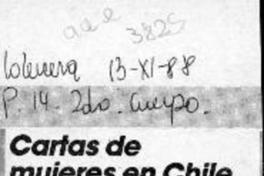 aae
3825
13-XI-88
P. 14. 2do. Cuerpo.
Cartas de
mujeres en Chile